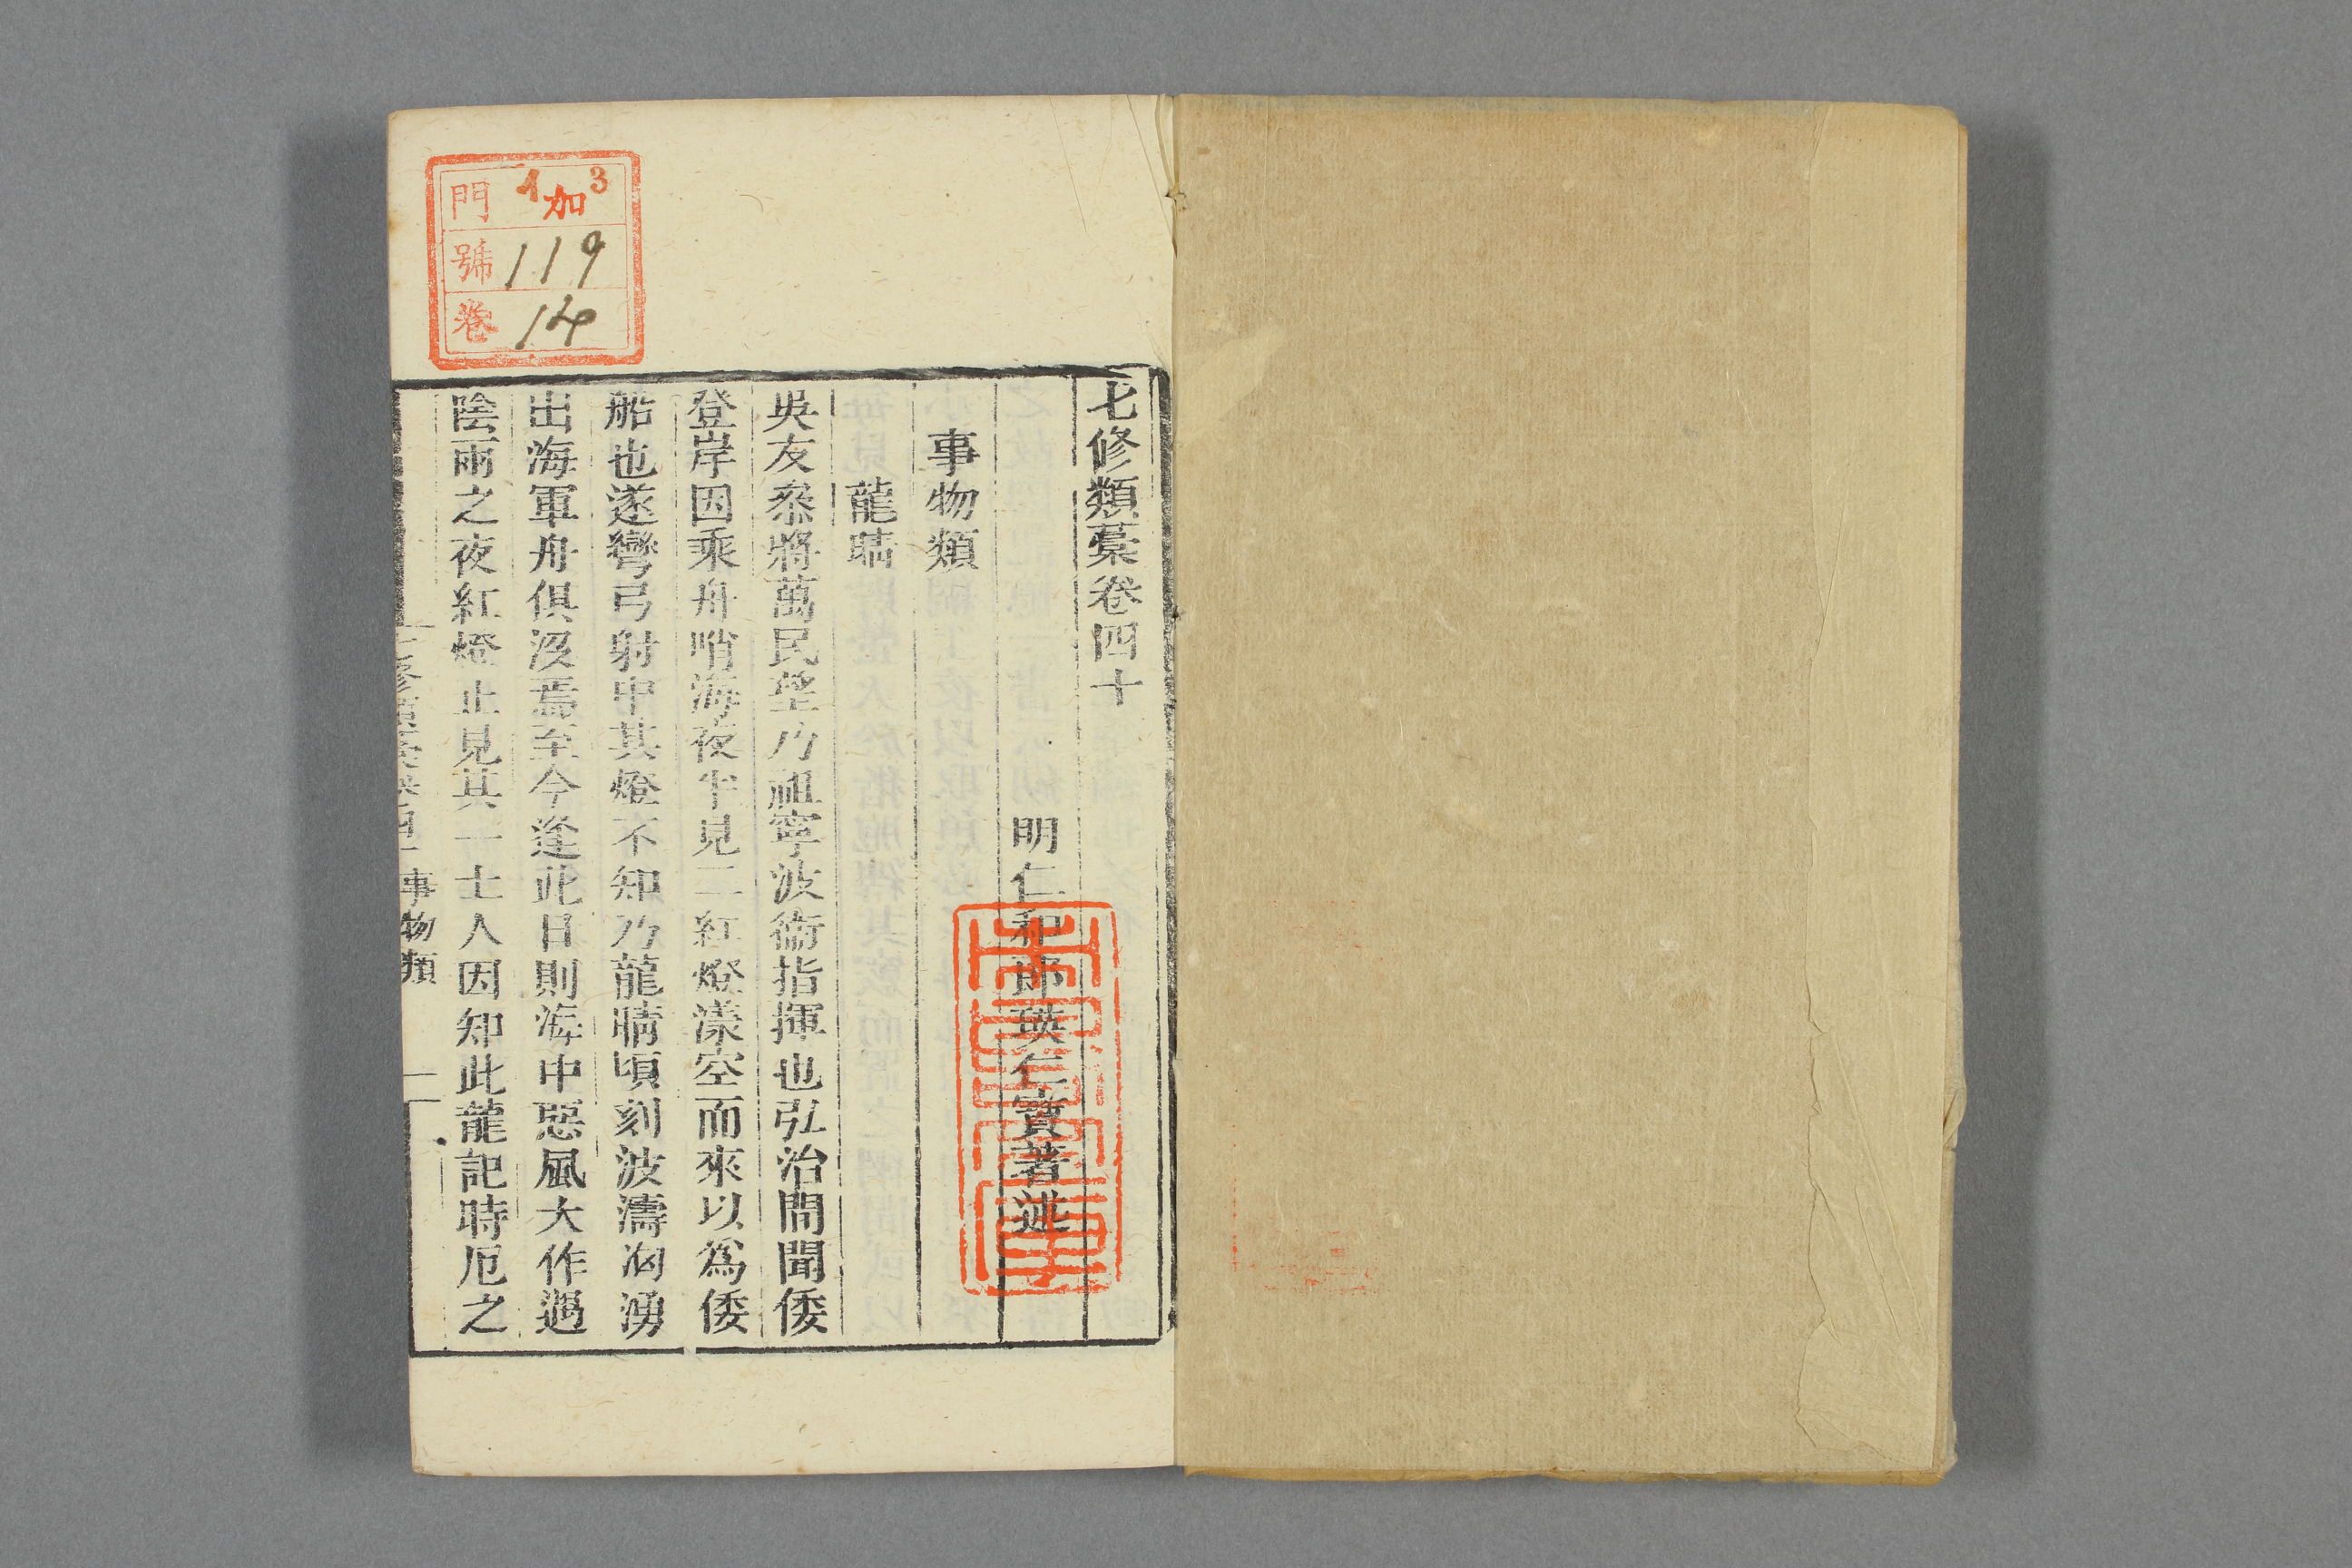 七修類藁卷四十
明仁和郎瑛仁寶著述
事物類
龍睛
吳友叅將萬民望乃祖寧波衞指揮也弘治間聞倭
登岸因乘舟哨海夜半見二紅燈漾空而來以爲倭
船也遂彎弓射中其燈不知乃龍睛頃刻波濤洶湧
出海軍舟俱沒焉至今逢此日則海中惡風大作過
陰雨之夜紅燈止見其一土人因知此龍記時厄之
事物類
一
門 1加3
號 119
卷 14